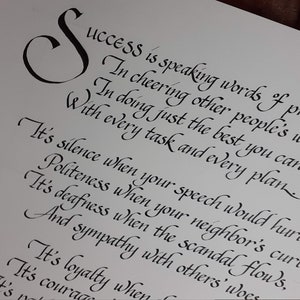 Success is speaking words of pr
In cheering other people's w
In doing just the best you can
With every task and every plan
It's silence when your speech would hurt
Politeness when your neighbor's curt
It's deafness when the scandal flows,
And sympathy with others' woes
It's loyalty when d
It's courage